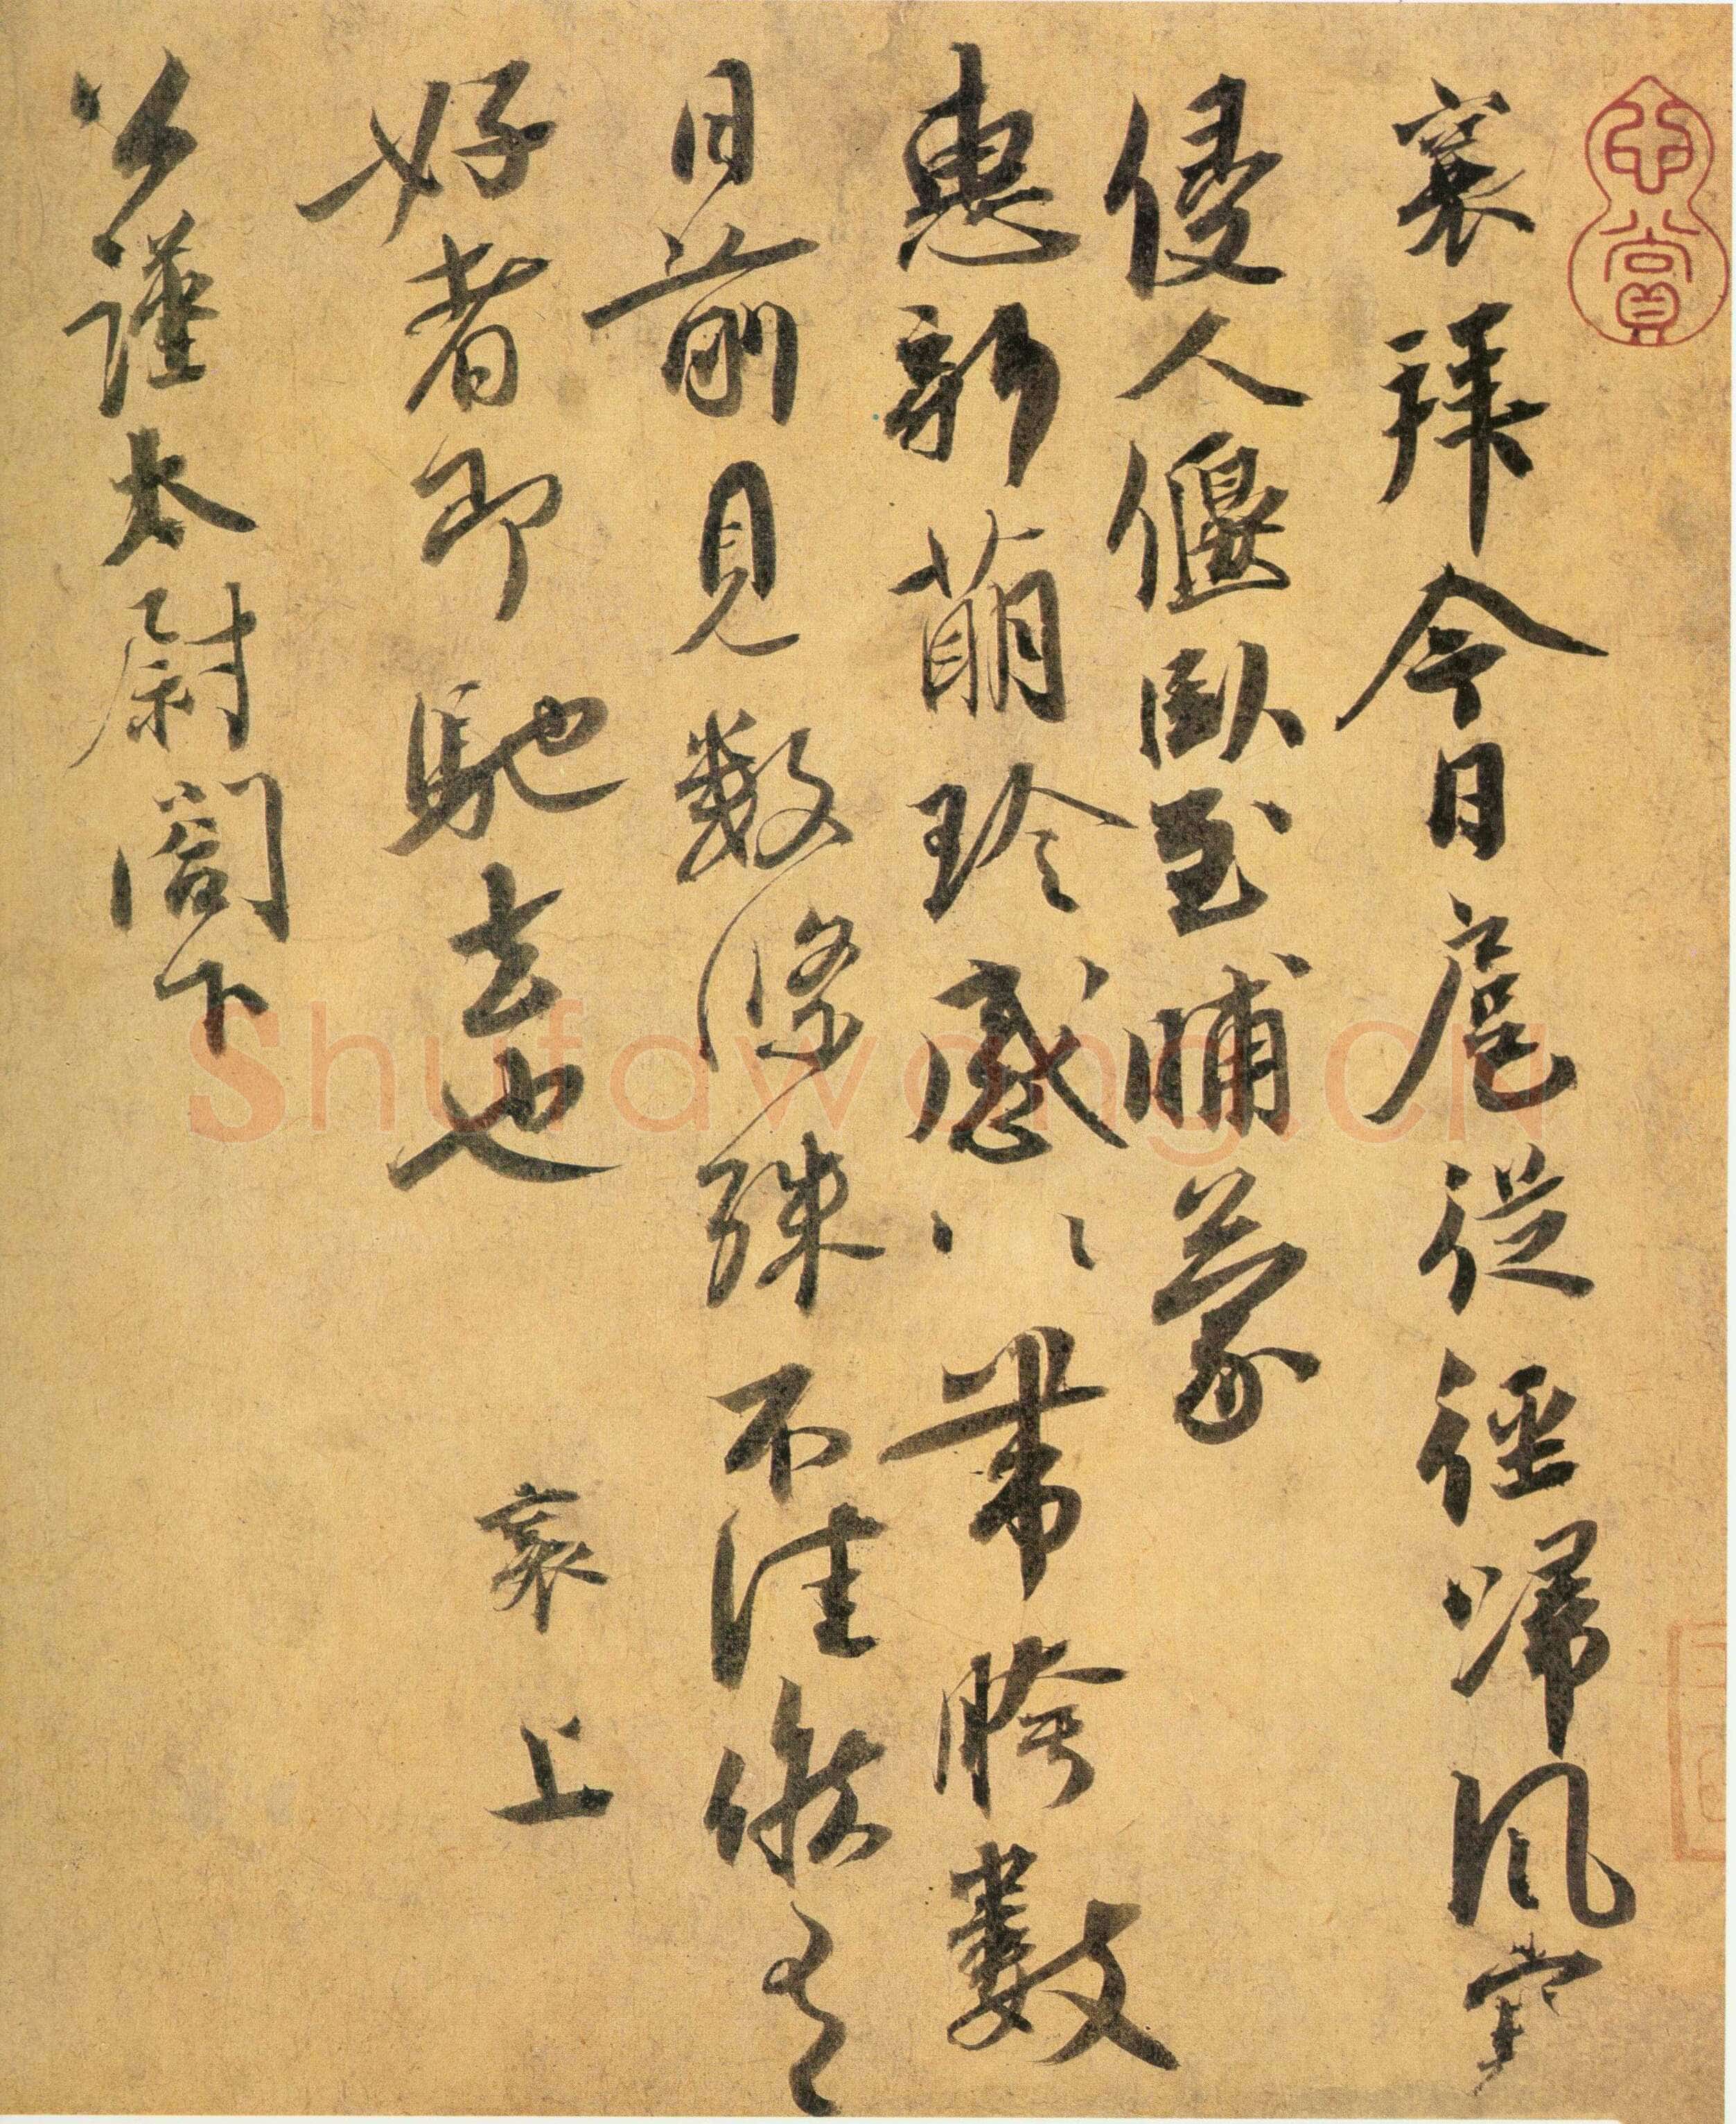 襄拜今日扈從徑歸風寒
侵人偃臥至晡蒙
惠新萌珍感〻帶胯數
日前見數條殊不佳候有
好者即馳去也襄上
公謹太尉閤下
Shufawang.cn